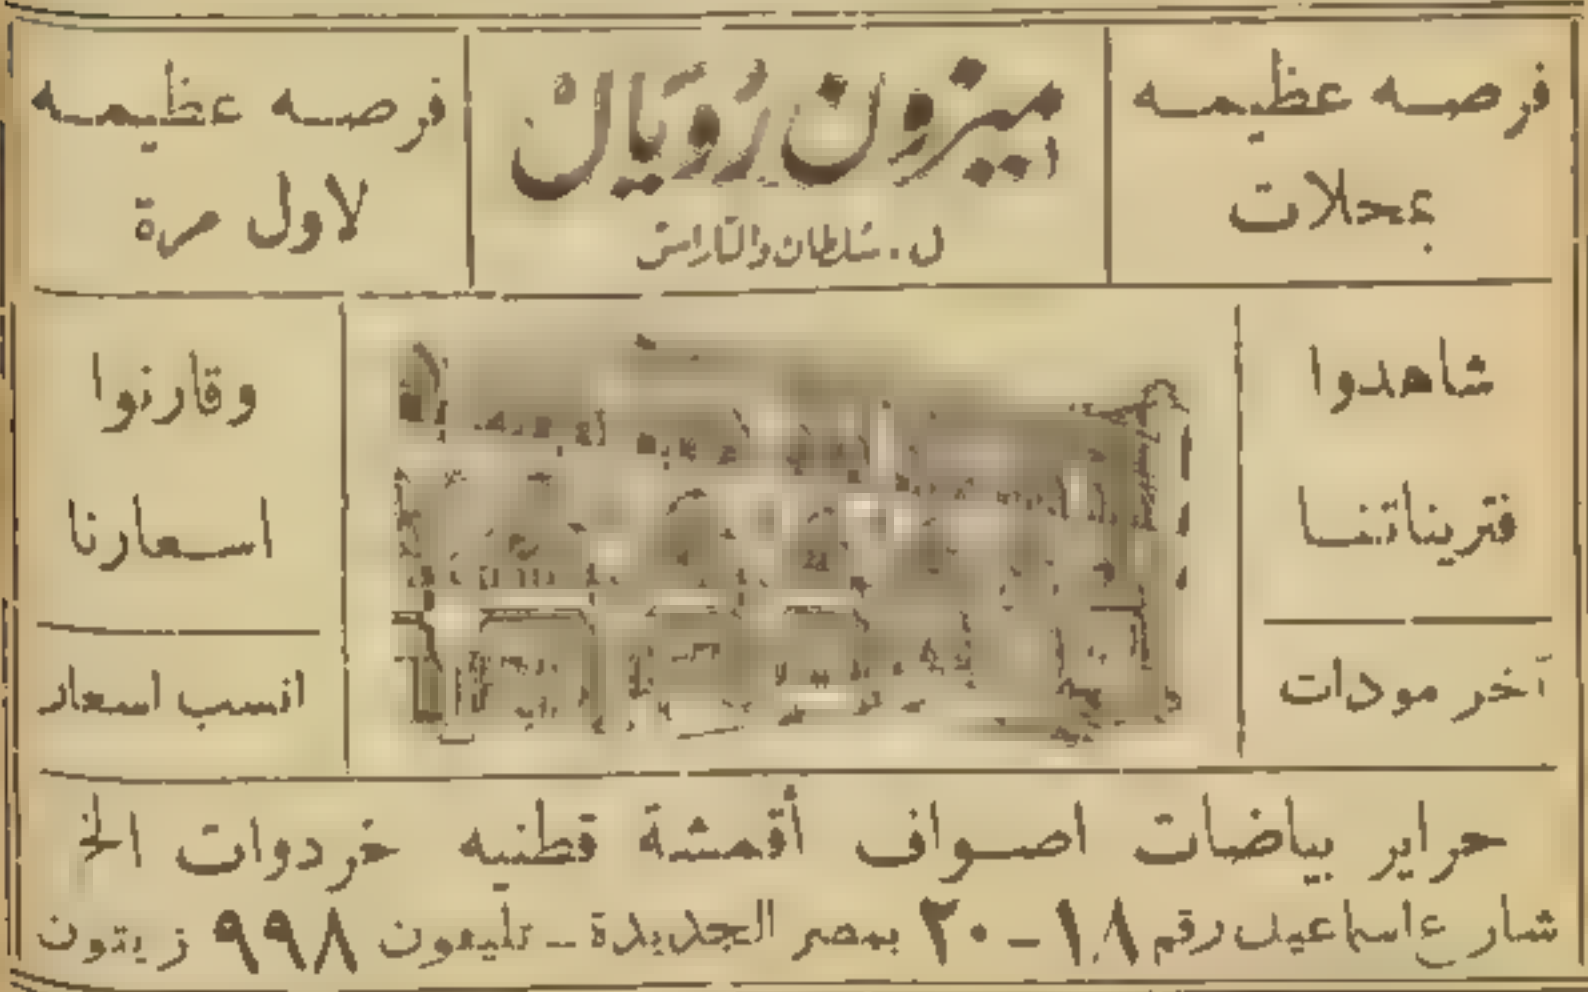 فرصه عظيمه
عجلات
ميزون رويال
ل . سلطان
فرصه عظيمه
لاول مرة
شاهدوا
فتريناتنا
آخر مودات
وقارنوا
اسعارنا
انسب اسعار
حراير بياضات اصواف أقمشة قطنيه خردوات الخ
شارع اسماعيل رقم ١٨ - ٢٠ بمصر الجديدة - تليفون ٩٩٨ زيتون